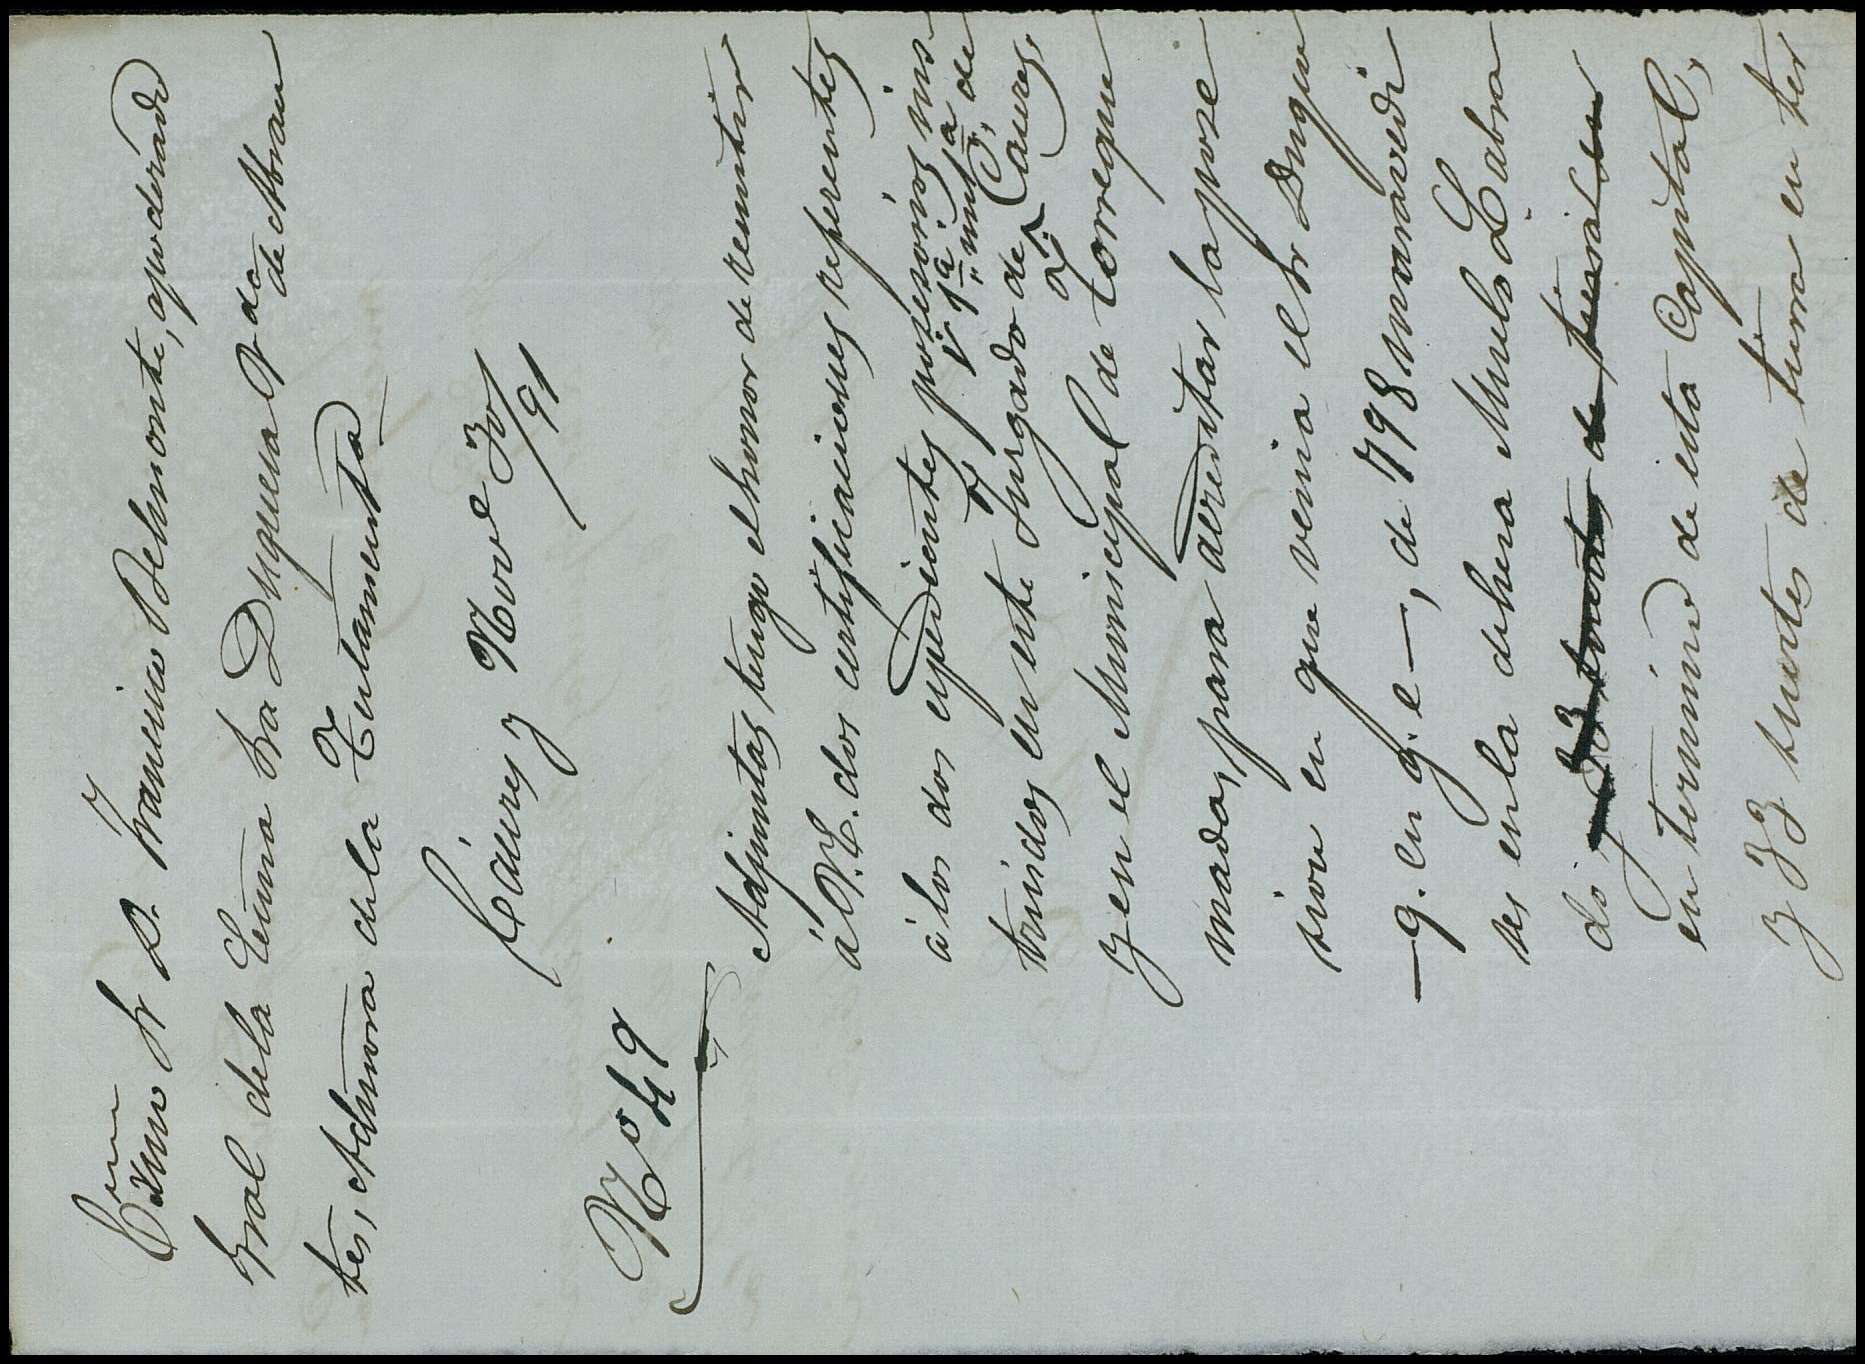 Excmo Sr D. Francisco Belmonte, apoderado
gral de la Excma Sra Duquesa Vda de Abran
tes, Admora de la Testamentª
Cáceres y Nove 30/91
Nº 49
Adjuntas tengo el honor de remitir
á V.E. dos certificaciones referentes
á los dos expedientes posesorios ins
truidos en este Juzgado de 1ª instª de Cáceres
y en el Municipal de Torreque
mada, para acreditar la pose
sion en que venia el Sr Duque
—q. en g. e—, de 798 maravedi
ses en la dehesa Muelo Labra
do
en término de esta Capital,
y 33 suertes de tierra en ter